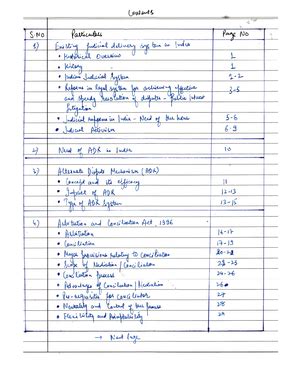 Contents
S.NO Particulars Page No
1) Existing Judicial delivery system in India
• Historical Overview 1
• History 1
• Indian Judicial System 1-2
• Reforms in legal system for achieving effective and speedy resolution of disputes - Public interest litigation 3-5
• Judicial Reforms in India - Need of the hour 5-6
• Judicial Activism 6-9
2) Need of ADR in India 10
3) Alternate Dispute Mechanism (ADR)
• Concept and its efficacy 11
• Import of ADR 12-13
• Type of ADR System 13-15
4) Arbitration and Conciliation Act, 1996
• Arbitration 16-17
• Conciliation 17-19
• Major Provisions relating to conciliation 20-22
• Scope of Mediation/Conciliation 22-23
• Conciliation Process 24-26
• Advantages of Conciliation/Mediation 26
• Pre-requisites for conciliator 27
• Neutrality and Control of the process 28
• Flexibility and Adaptability 29
→ Next Page